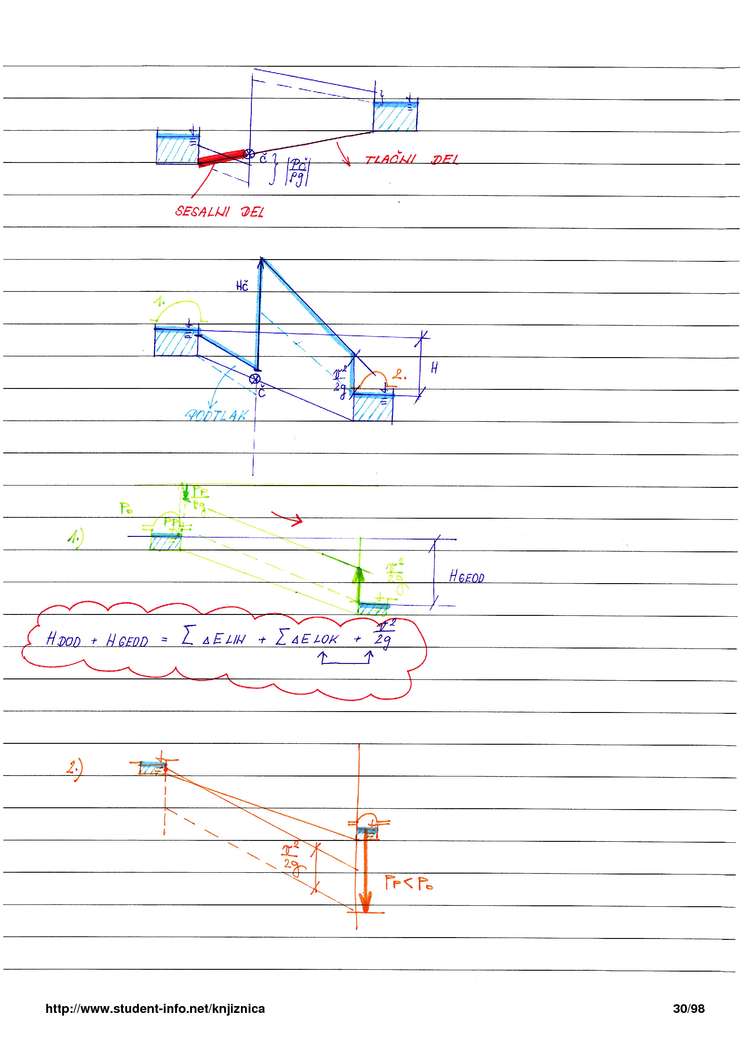 Č } |PČ/ρg|
TLAČNI DEL
SESALNI DEL
HČ
1.
H
v²/2g
2.
Č
PODTLAK
Pp/ρg
P₀
Pp
1.)
HGEOD
HDOD + HGEOD = Σ ΔELIN + Σ ΔELOK + v²/2g
2.)
v²/2g
Pp < P₀
http://www.student-info.net/knjiznica 30/98